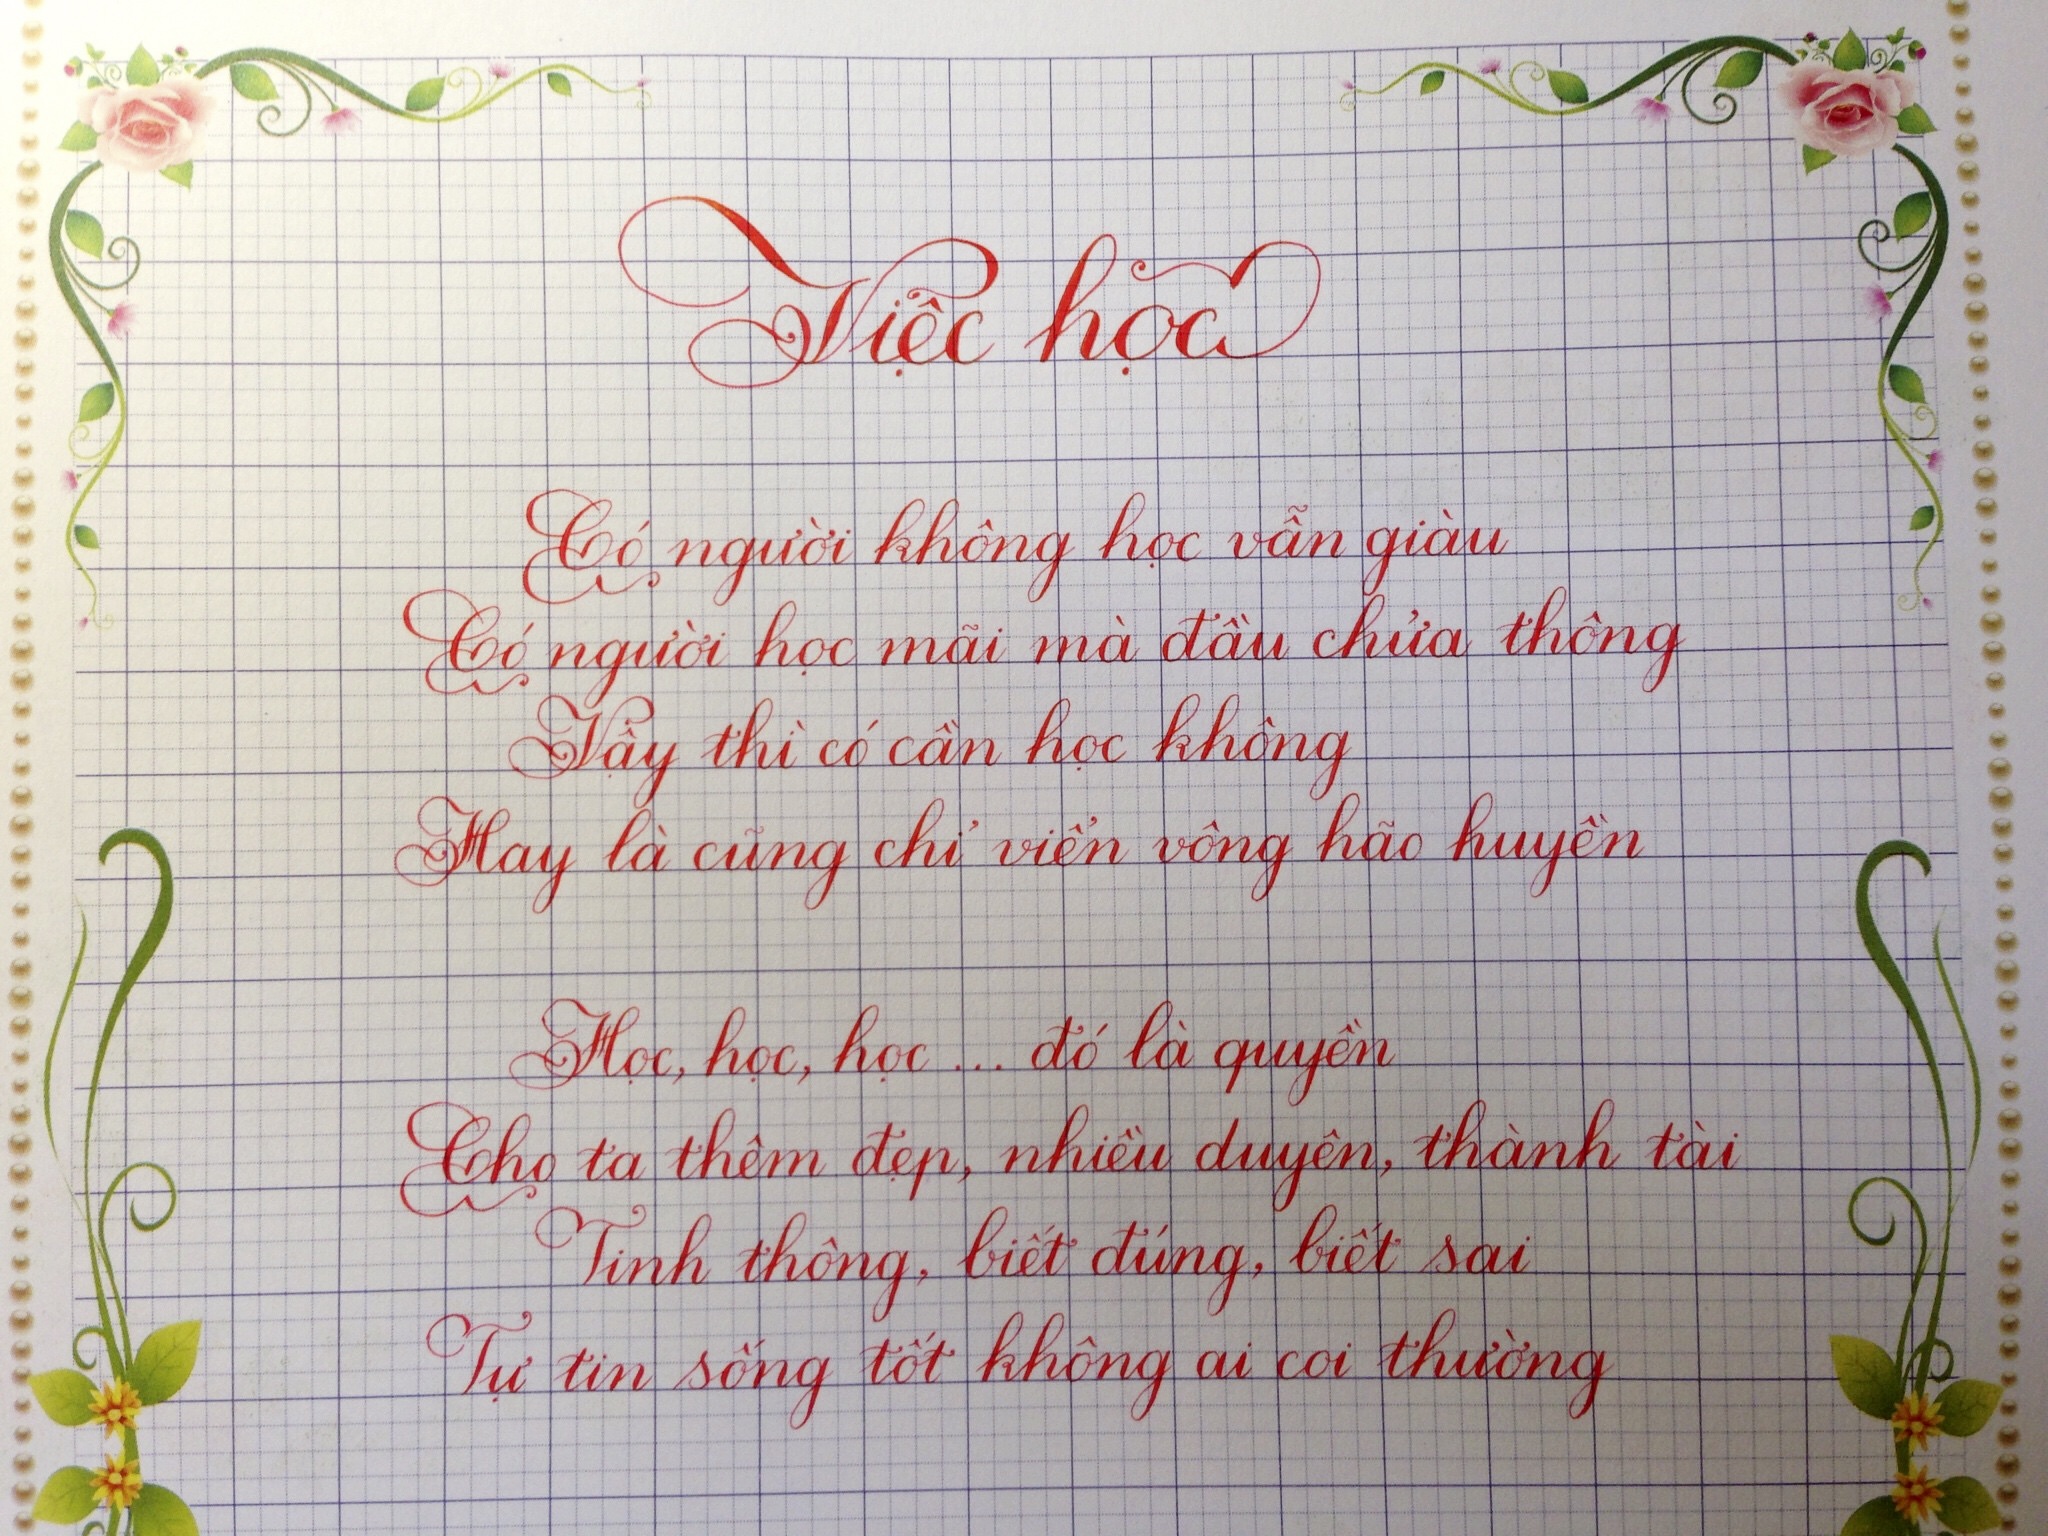 Việc học
Có người không học vẫn giàu
Có người học mãi mà đầu chửa thông
Vậy thì có cần học không
Hay là cũng chỉ viển vông hão huyền
Học, học, học ... đó là quyền
Cho ta thêm đẹp, nhiều duyên, thành tài
Tinh thông, biết đúng, biết sai
Tự tin sống tốt không ai coi thường